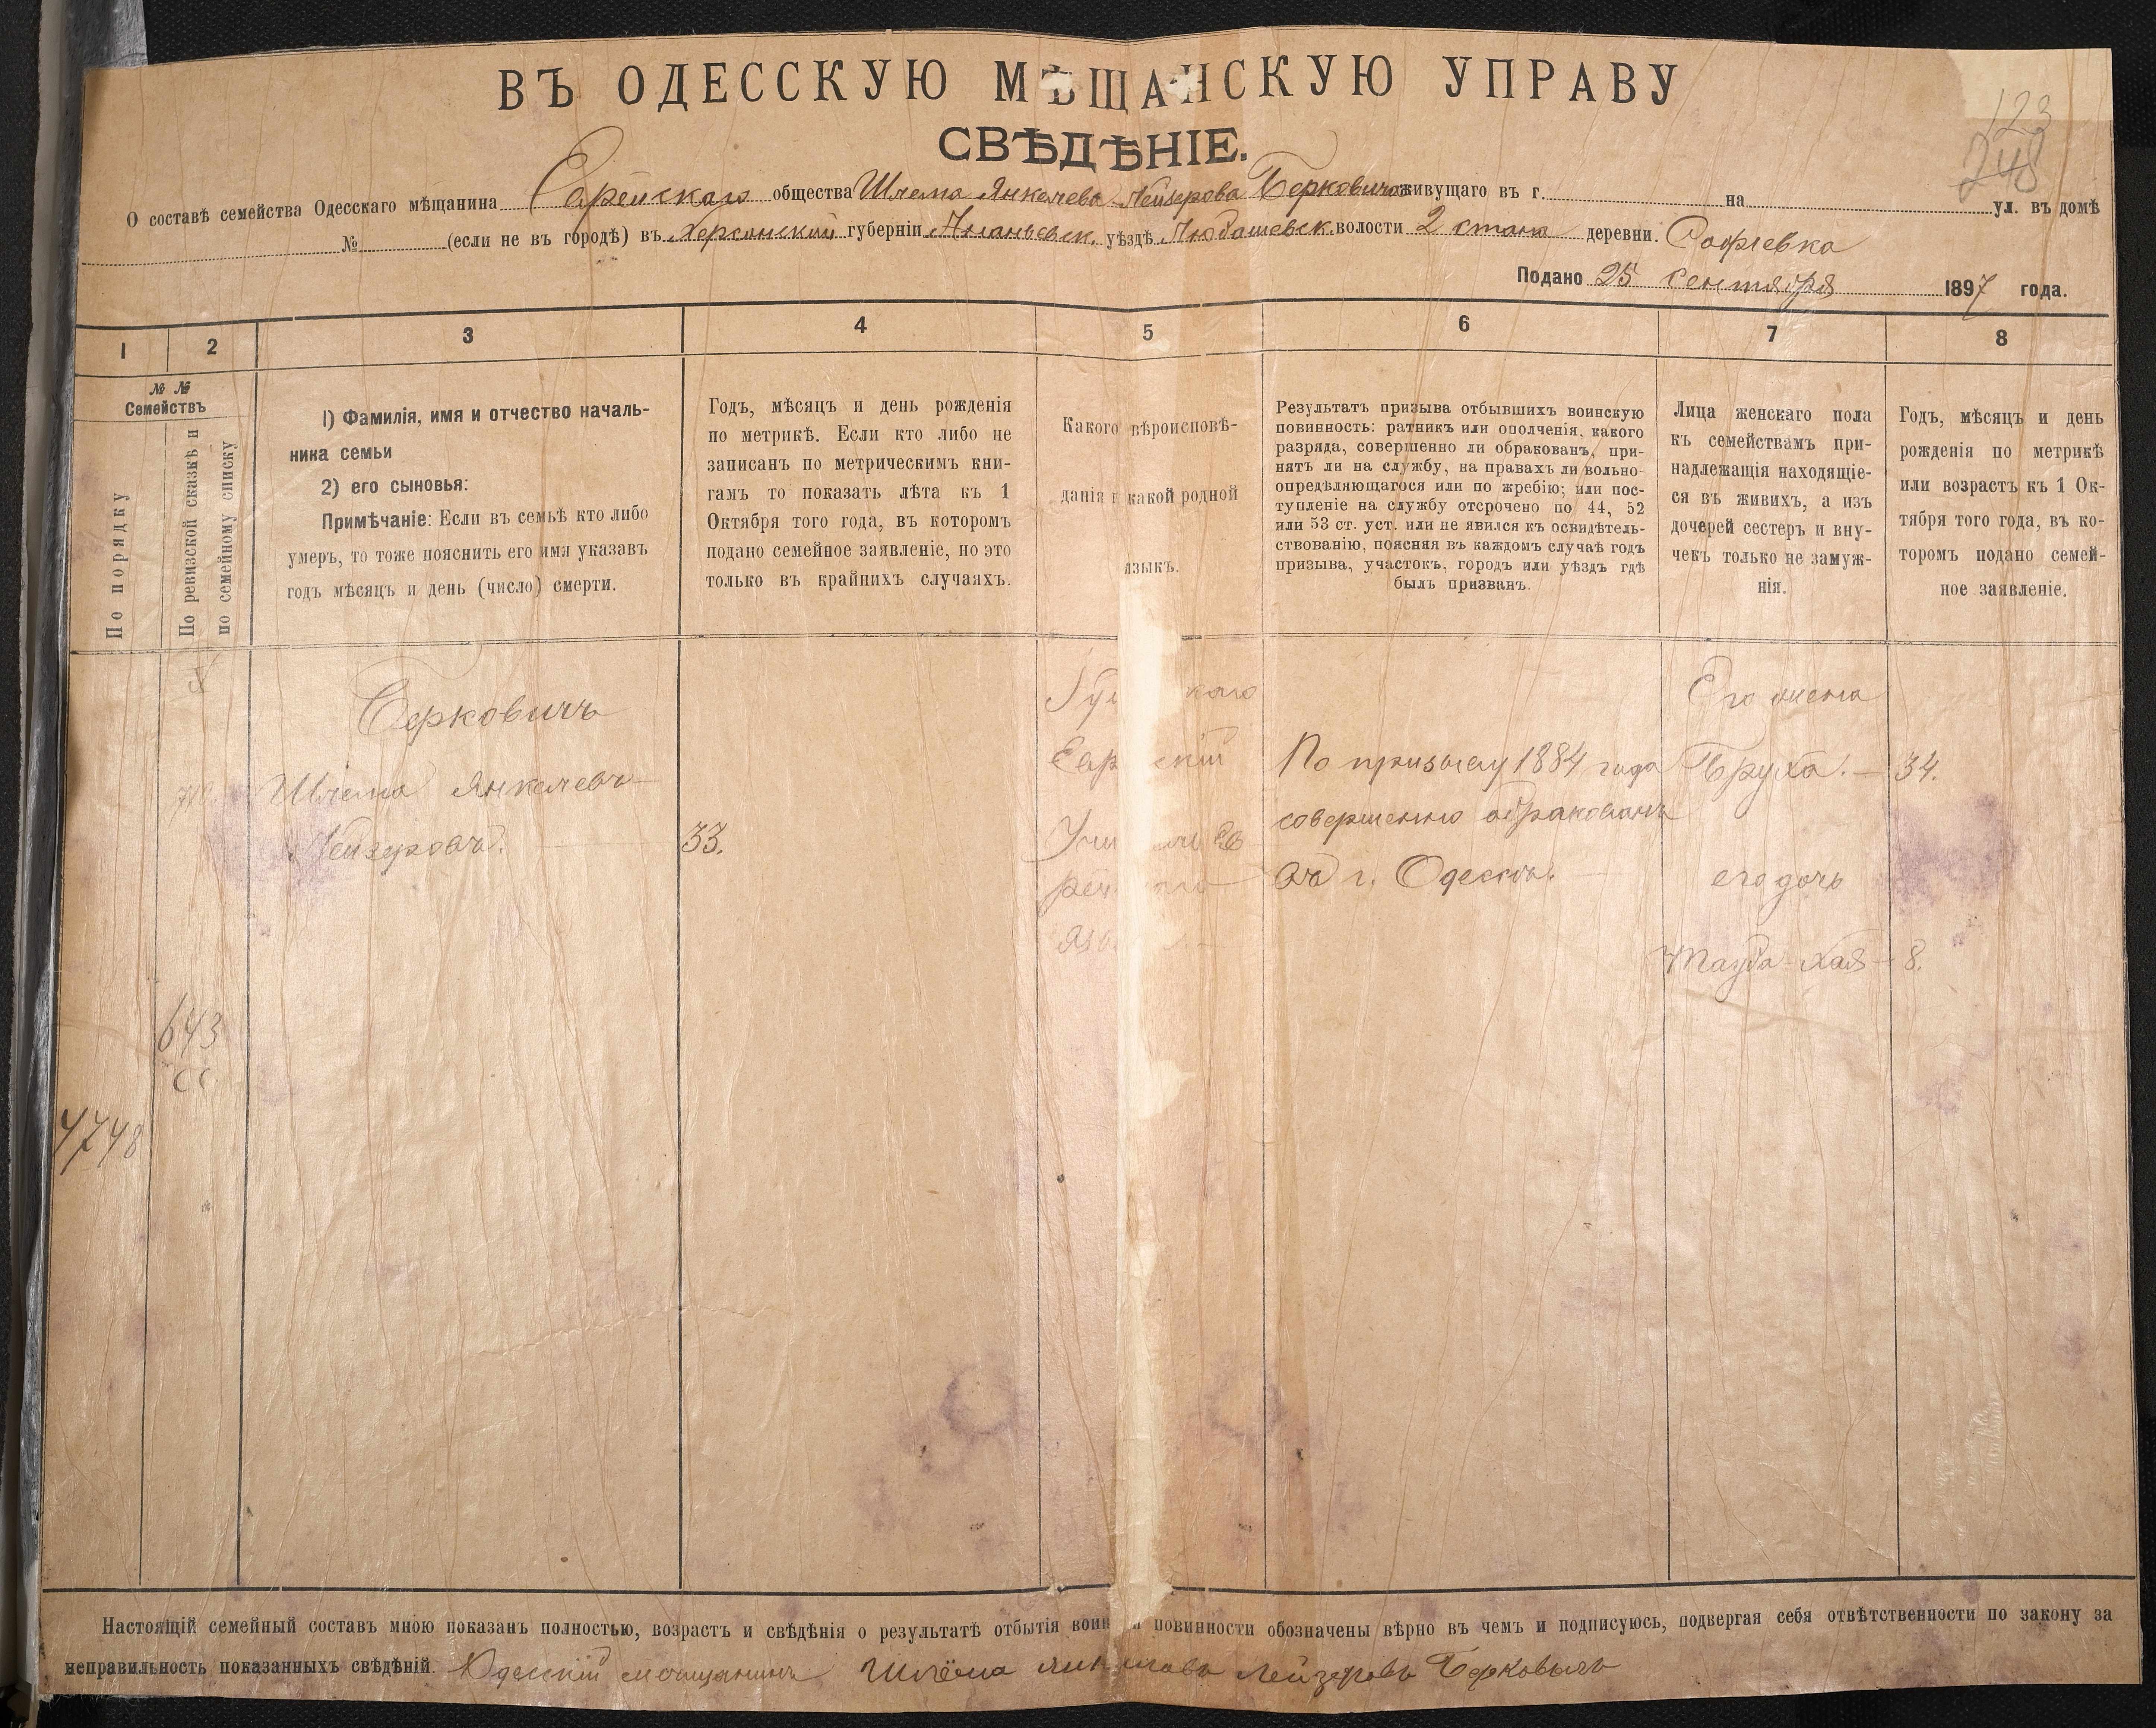 ВЪ ОДЕССКУЮ МѢЩАНСКУЮ УПРАВУ
СВѢДѢНІЕ.
123
248
О составѣ семейства Одесскаго мѣщанина Еврейскаго общества Шлема Янкелева Лейзерова Берковича живущаго въ г. на ул. въ домѣ
№ (если не въ городѣ) въ Херсонской губерніи Ананьевск. уѣздѣ Любашевск. волости 2 стана деревни. Софіевка
Подано 25 Сентября 1897 года.
1 2 3 4 5 6 7 8
№ №
Семействъ
По порядку
По ревизской сказкѣ и
по семейному списку
1) Фамилія, имя и отчество началь-
ника семьи
2) его сыновья:
Примѣчаніе: Если въ семьѣ кто либо
умеръ, то тоже пояснить его имя указавъ
годъ мѣсяцъ и день (число) смерти.
Годъ, мѣсяцъ и день рожденія
по метрикѣ. Если кто либо не
записанъ по метрическимъ кни-
гамъ то показать лѣта къ 1
Октября того года, въ которомъ
подано семейное заявленіе, но это
только въ крайнихъ случаяхъ.
Какого вѣроисповѣ-
данія и какой родной
языкъ.
Результатъ призыва отбывшихъ воинскую
повинность: ратникъ или ополченія, какого
разряда, совершенно ли обракованъ, при-
нятъ ли на службу, на правахъ ли вольно-
опредѣляющагося или по жребію; или пос-
тупленіе на службу отсрочено по 44, 52
или 53 ст. уст. или не явился къ освидѣтель-
ствованію, поясняя въ каждомъ случаѣ годъ
призыва, участокъ, городъ или уѣздъ гдѣ
былъ призванъ.
Лица женскаго пола
къ семействамъ при-
надлежащія находящіе-
ся въ живихъ, а изъ
дочерей сестеръ и вну-
чекъ только не замуж-
нія.
Годъ, мѣсяцъ и день
рожденія по метрикѣ
или возрастъ къ 1 Ок-
тября того года, въ ко-
торомъ подано семей-
ное заявленіе.
Берковичъ
Шлема Янкелевъ
Лейзеровъ.
33.
По призыву 1884 года
совершенно обракованъ
въ г. Одессѣ.
Его жена
Бруха. — 34.
его дочь
Хая — 8.
643
СС
4748
Настоящій семейный составъ мною показанъ полностью, возрастъ и свѣдѣнія о результатѣ отбытія воин повинности обозначены вѣрно въ чемъ и подписуюсь, подвергая себя отвѣтственности по закону за
неправильность показанныхъ свѣдѣній. Одесскій мещанинъ Шлёма Янкелевъ Лейзеровъ Берковичъ